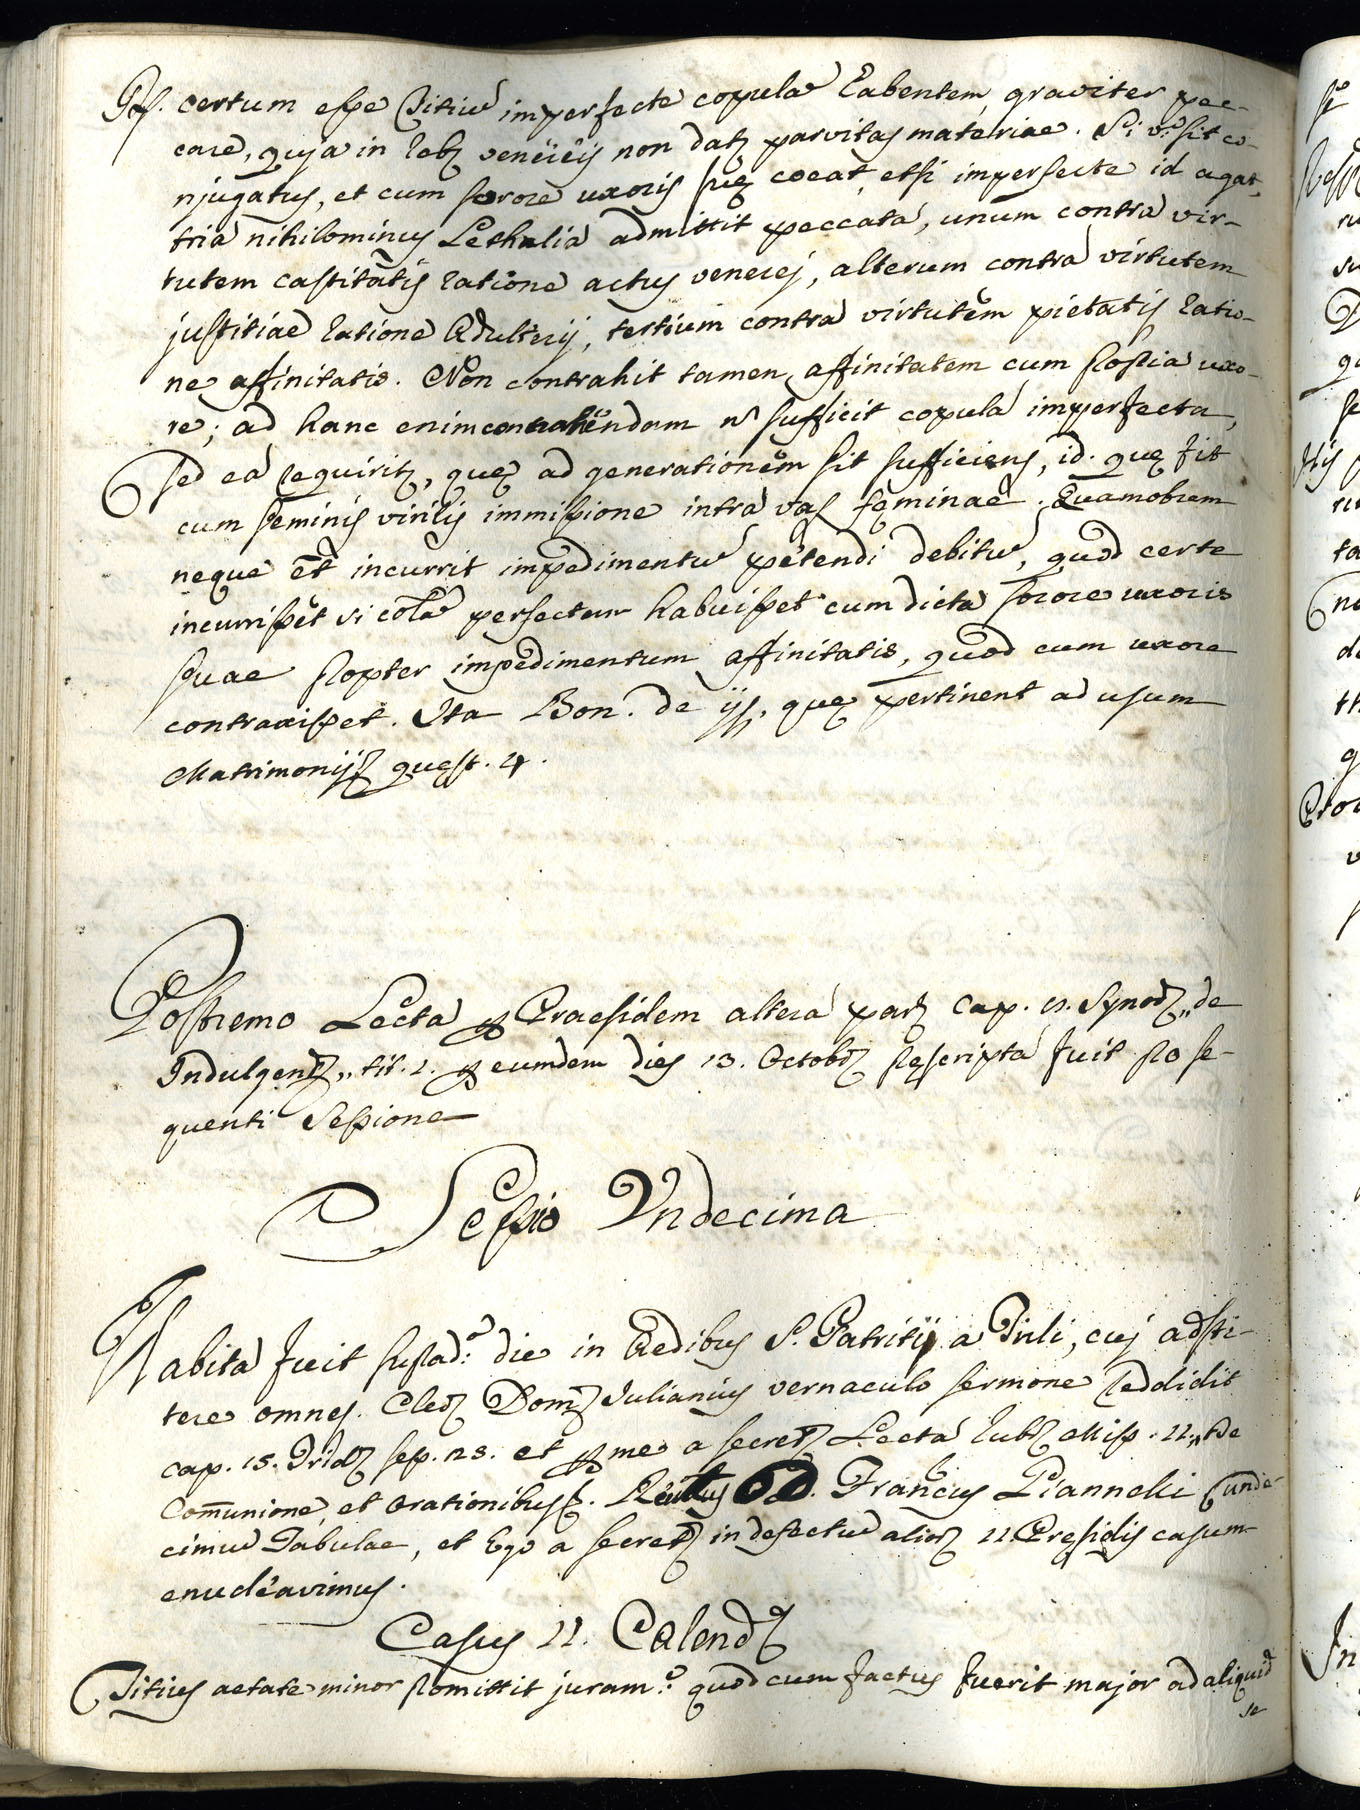 Resp. certum esse Titiũ imperfecte copulã habentem, graviter pec-
care, quia in rebus venereis non datur parvitas materiae. Si vᵒ sit co-
njugatus, et cum sorore uxoris suę coeat, etsi imperfecte id agat,
tria nihilominus Lethalia admittit peccata, unum contra vir-
tutem castitatis ratione actus venerej, alterum contra virtutem
justitiae ratione Adulterij, tertium contra virtutem pietatis ratio-
ne affinitatis. Non contrahit tamen affinitatem cum propria uxo-
re; ad hanc enim contrahendam n̄ sufficit copula imperfecta,
sed ea requiritur, quę ad generationem sit sufficiens, id. quę fit
cum seminis virilis immissione intra vas fęminae. Quamobrem
neque et̄ incurrit impedimentũ petendi debitũ, quod certe
incurrisset si col̃ã perfectam habuisset cum dicta sorore uxoris
suae propter impedimentum affinitatis, quod cum uxore
contraxisset. Ita Bon. de ijs, quę pertinent ad usum
Matrimonij quęst. 4.
Postremo Lecta per Praesidem altera pars cap. 11. Synod. „ de
Indulgent. „ tit. 2. per eumdem dies 13. Octobr. pręscripta fuit pro se-
quenti Sessione
Sessio Undecima
Habita fuit suprad.ᵃ die in Aedibus S. Patritij a Tirli, cuj adsti-
tere omnes. Cler. Dom. Julianius vernaculo sermone reddidit
cap. 15. Trid. ses. 23. et per me a secret. Lecta rubr. Miss. 11 „ De
Com̄unione, et orationibus. Franc̃us Giannelli (unde
cimũ Tabulae, et Ego a secret. in defectũ alior. 11 Pręsidis casum
enucleavimus.
Casus 11. Calend.
Titius aetate minor promittit juram.ᵒ quod cum factus fuerit major ad aliquid
se